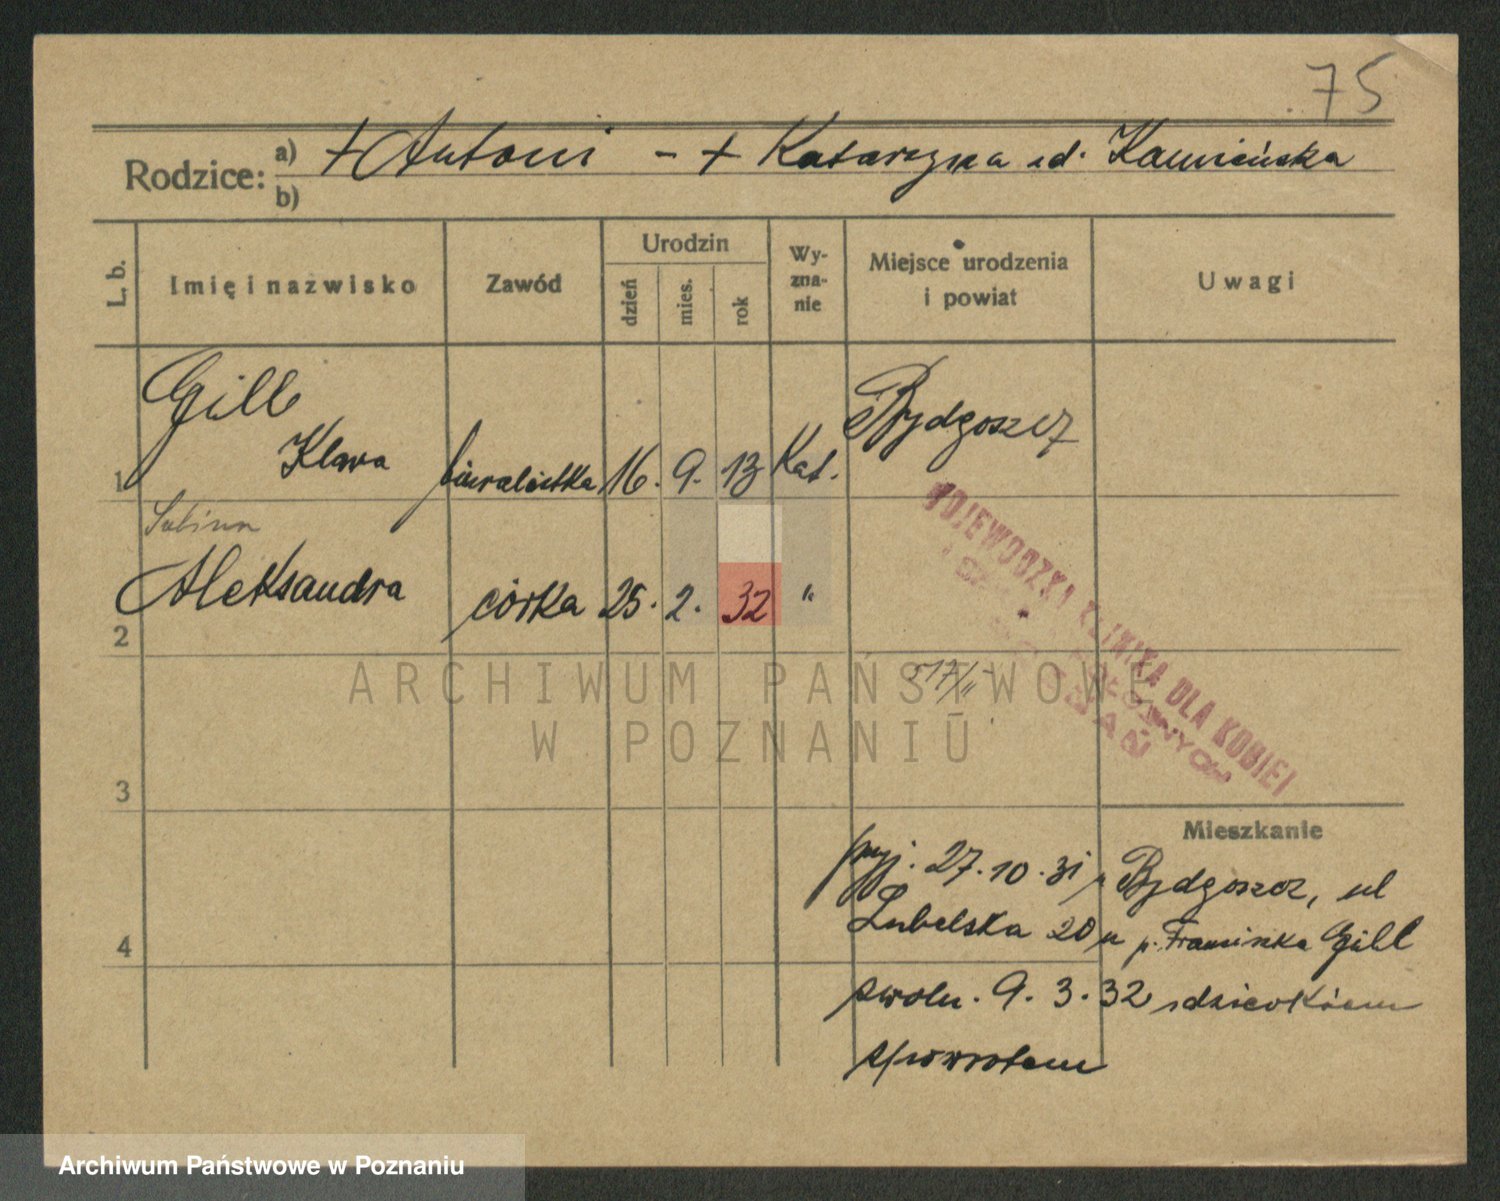 75
Rodzice: a) + Antoni - + Katarzyna zd. Kamińska
b)
L. b.
Imię i nazwisko
Zawód
Urodzin
dzień
mies.
rok
Wy-
zna-
nie
Miejsce urodzenia
i powiat
Uwagi
Gill
Klara biuralistka 16. 9. 13 Kat. Bydgoszcz
1
Sabina
Aleksandra córka 25. 2. 32 "
2
WOJEWÓDZKA KLINIKA DLA KOBIET
517/II
3
Mieszkanie
przj. 27.10.31 z Bydgoszcz, ul
Lubelska 20 u p. Franciszka Gill
4
zwoln. 9. 3. 32 z dzieckiem
zpowrotem
ARCHIWUM PAŃSTWOWE
W POZNANIU
Archiwum Państwowe w Poznaniu